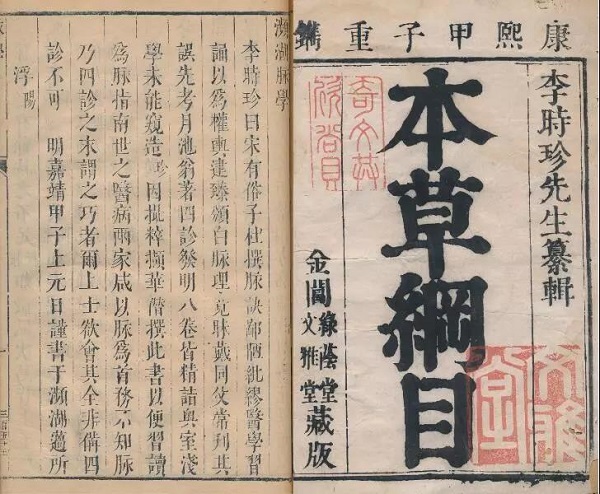 康熙甲子重鐫
李時珍先生纂輯
本草綱目
金閶
綠蔭堂
文雅堂
藏版
文雅堂
瀕湖脈學
李時珍曰宋有俗子杜撰脈訣鄙陋紕繆醫學習
誦以為權輿逮臻頒白脈理竟昧戴同父常刊其
誤先考月池翁著四診發明八卷皆精詣奧室淺
學未能窺造珍因撮粹擷華僭撰此書以便習讀
為脈指南世之醫病兩家咸以脈為首務不知脈
乃四診之末謂之巧者爾上士欲會其全非備四
診不可 明嘉靖甲子上元日謹書于瀕湖薖所
浮陽